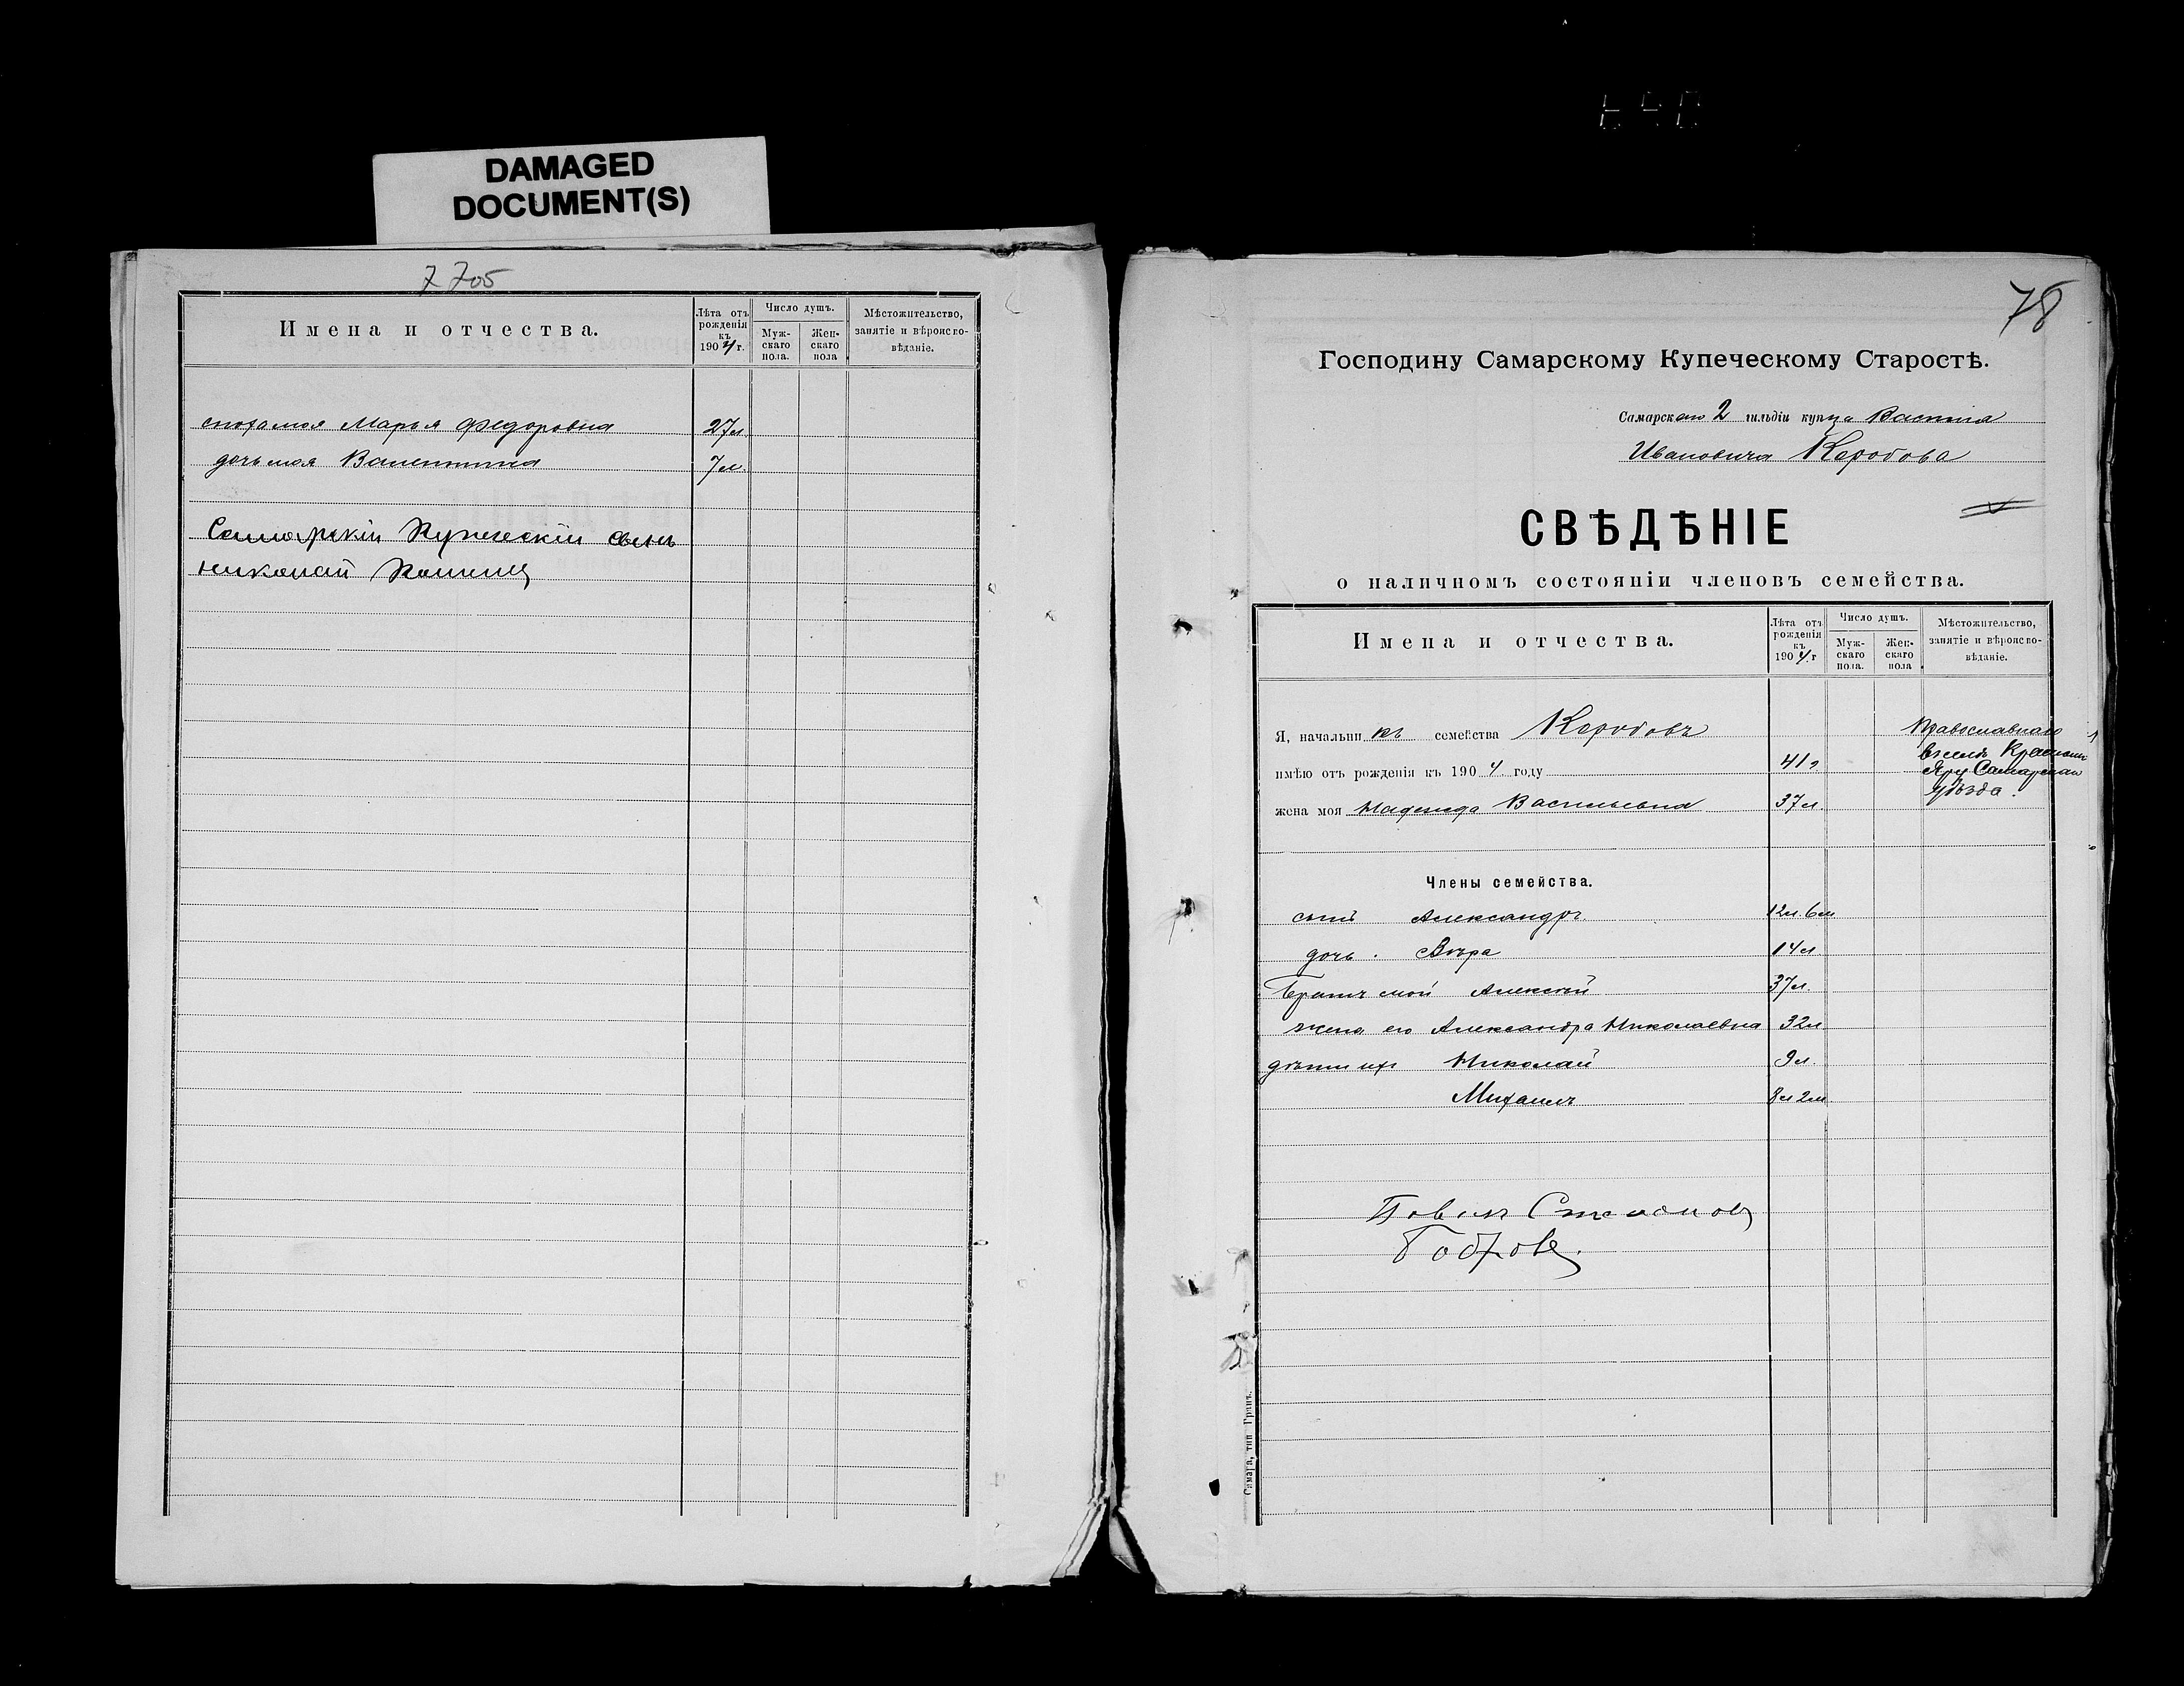 DAMAGED
DOCUMENT(S)
7705
Имена и отчества.
Лѣта отъ рожденія къ 1904 г.
Число душъ.
Мужскаго пола.
Женскаго пола
Мѣстожительство, занятіе и вѣроисповѣданіе.
сноха моя Марья Федоровна 27 л.
дочь моя Валентина 7 л.
Самарскій Купеческій сынъ
Николай
78
Господину Самарскому Купеческому Старостѣ.
Самарскаго 2 гильдіи купца Василія
Ивановича
СВѢДѢНІЕ
о наличномъ состояніи членовъ семейства.
Имена и отчества.
Лѣта отъ рожденія къ 1904 г
Число душъ.
Мужскаго пола.
Женскаго пола
Мѣстожительство, занятіе и вѣроисповѣданіе.
Я, начальникъ семейства
Православнаго
имѣю отъ рожденія къ 1904 году 41 г
въ селѣ Красномъ
Яру Самарскаго
уѣзда.
жена моя Надежда Васильевна 37 л.
Члены семейства.
сынъ Александръ 12 л. 6 м
дочь. Вѣра 14 л
Братъ мой Алексѣй 37 л.
жена его Александра Николаевна 32 л
дѣти ихъ Николай 9 л.
Михаилъ 8 л 2 м
Степановъ
Бобровъ.
Самара, тип Гранъ.